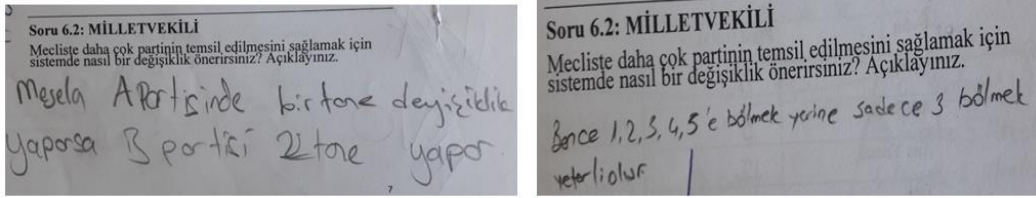 Soru 6.2: MİLLETVEKİLİ
Mecliste daha çok partinin temsil edilmesini sağlamak için
sistemde nasıl bir değişiklik önerirsiniz? Açıklayınız.
Mesela A Partisinde bir tane deyişiklik
yaparsa B partisi 2 tane yapar.
7
Soru 6.2: MİLLETVEKİLİ
Mecliste daha çok partinin temsil edilmesini sağlamak için
sistemde nasıl bir değişiklik önerirsiniz? Açıklayınız.
Bence 1,2,3,4,5'e bölmek yerine sadece 3 bölmek
yeterli olur